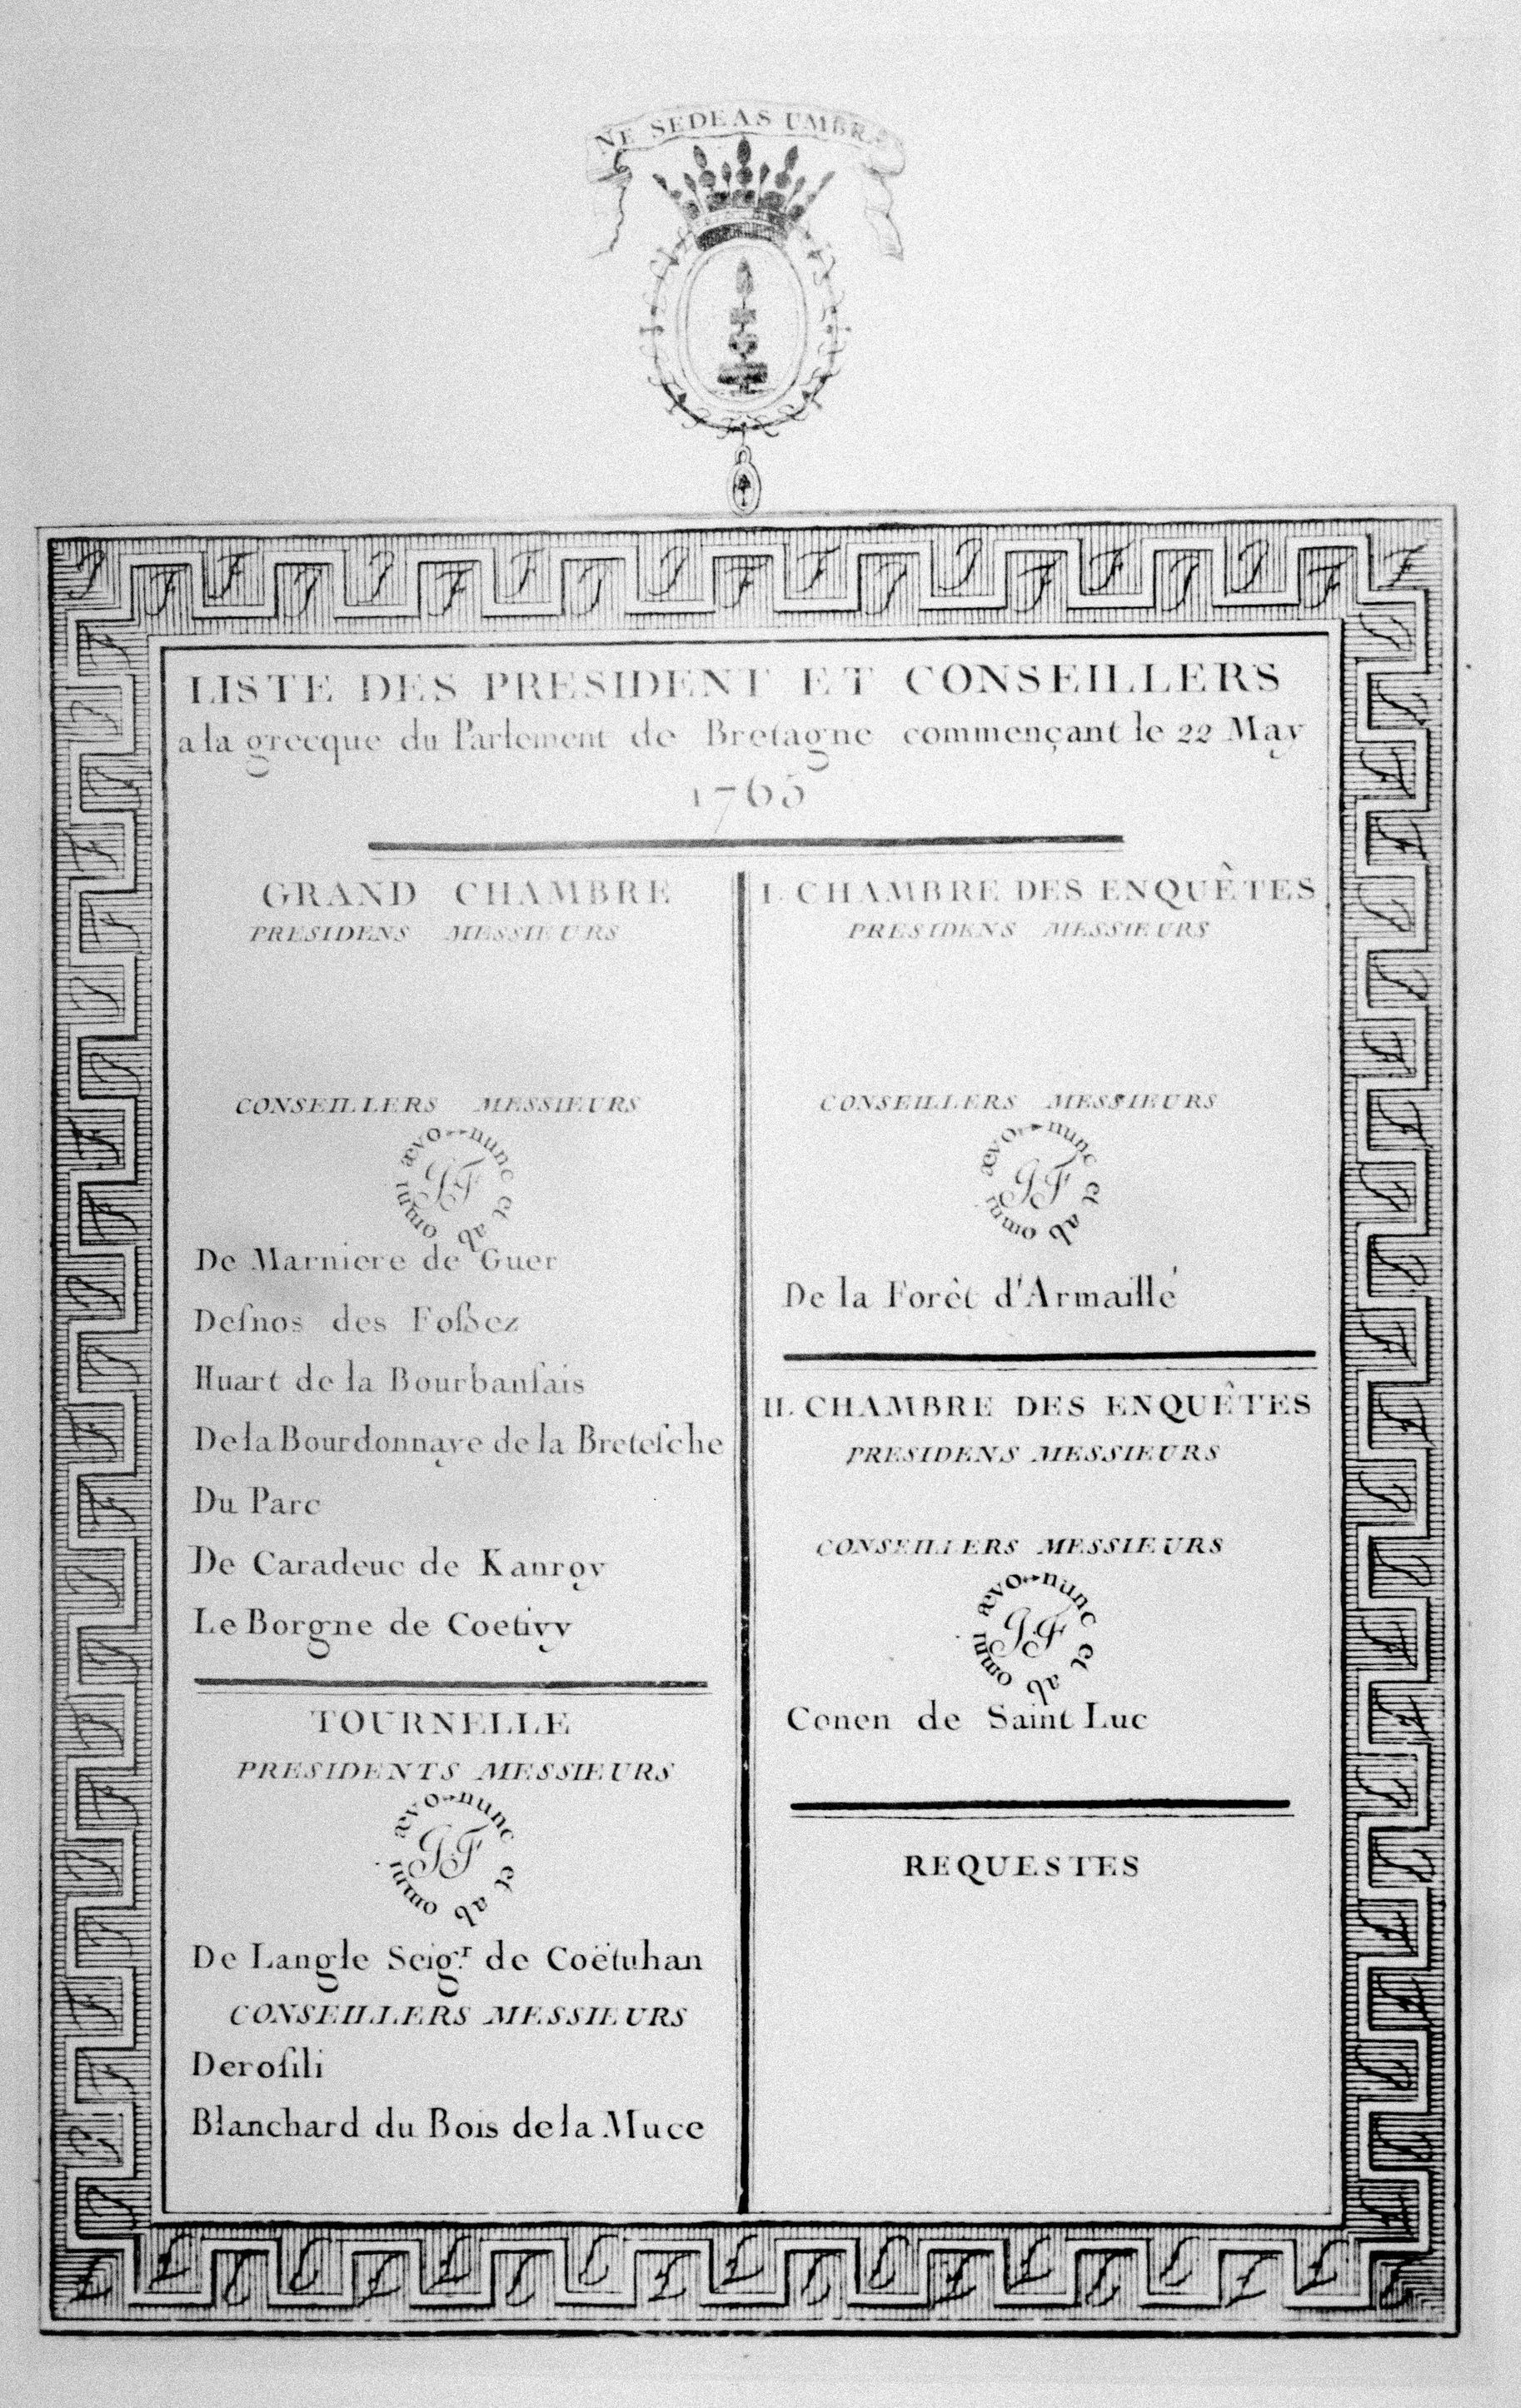 NE SEDEAS UMBRA
LISTE DES PRESIDENT ET CONSEILLERS
a la grecque du Parlement de Bretagne commençant le 22 May
1765
GRAND CHAMBRE
PRESIDENS MESSIEURS
CONSEILLERS MESSIEURS
nunc et ab omni ævo
JF
De Marniere de Guer
Deſnos des Foſsez
Huart de la Bourbanſais
De la Bourdonnaye de la Breteſche
Du Parc
De Caradeuc de Kanroy
Le Borgne de Coetivy
TOURNELLE
PRESIDENTS MESSIEURS
nunc et ab omni ævo
JF
De Langle Seig.r de Coëtuhan
CONSEILLERS MESSIEURS
Deroſili
Blanchard du Bois de la Muce
I. CHAMBRE DES ENQUÊTES
PRESIDENS MESSIEURS
CONSEILLERS MESSIEURS
nunc et ab omni ævo
JF
De la Forêt d'Armaillé
II. CHAMBRE DES ENQUÊTES
PRESIDENS MESSIEURS
CONSEILLERS MESSIEURS
nunc et ab omni ævo
JF
Conen de Saint Luc
REQUESTES